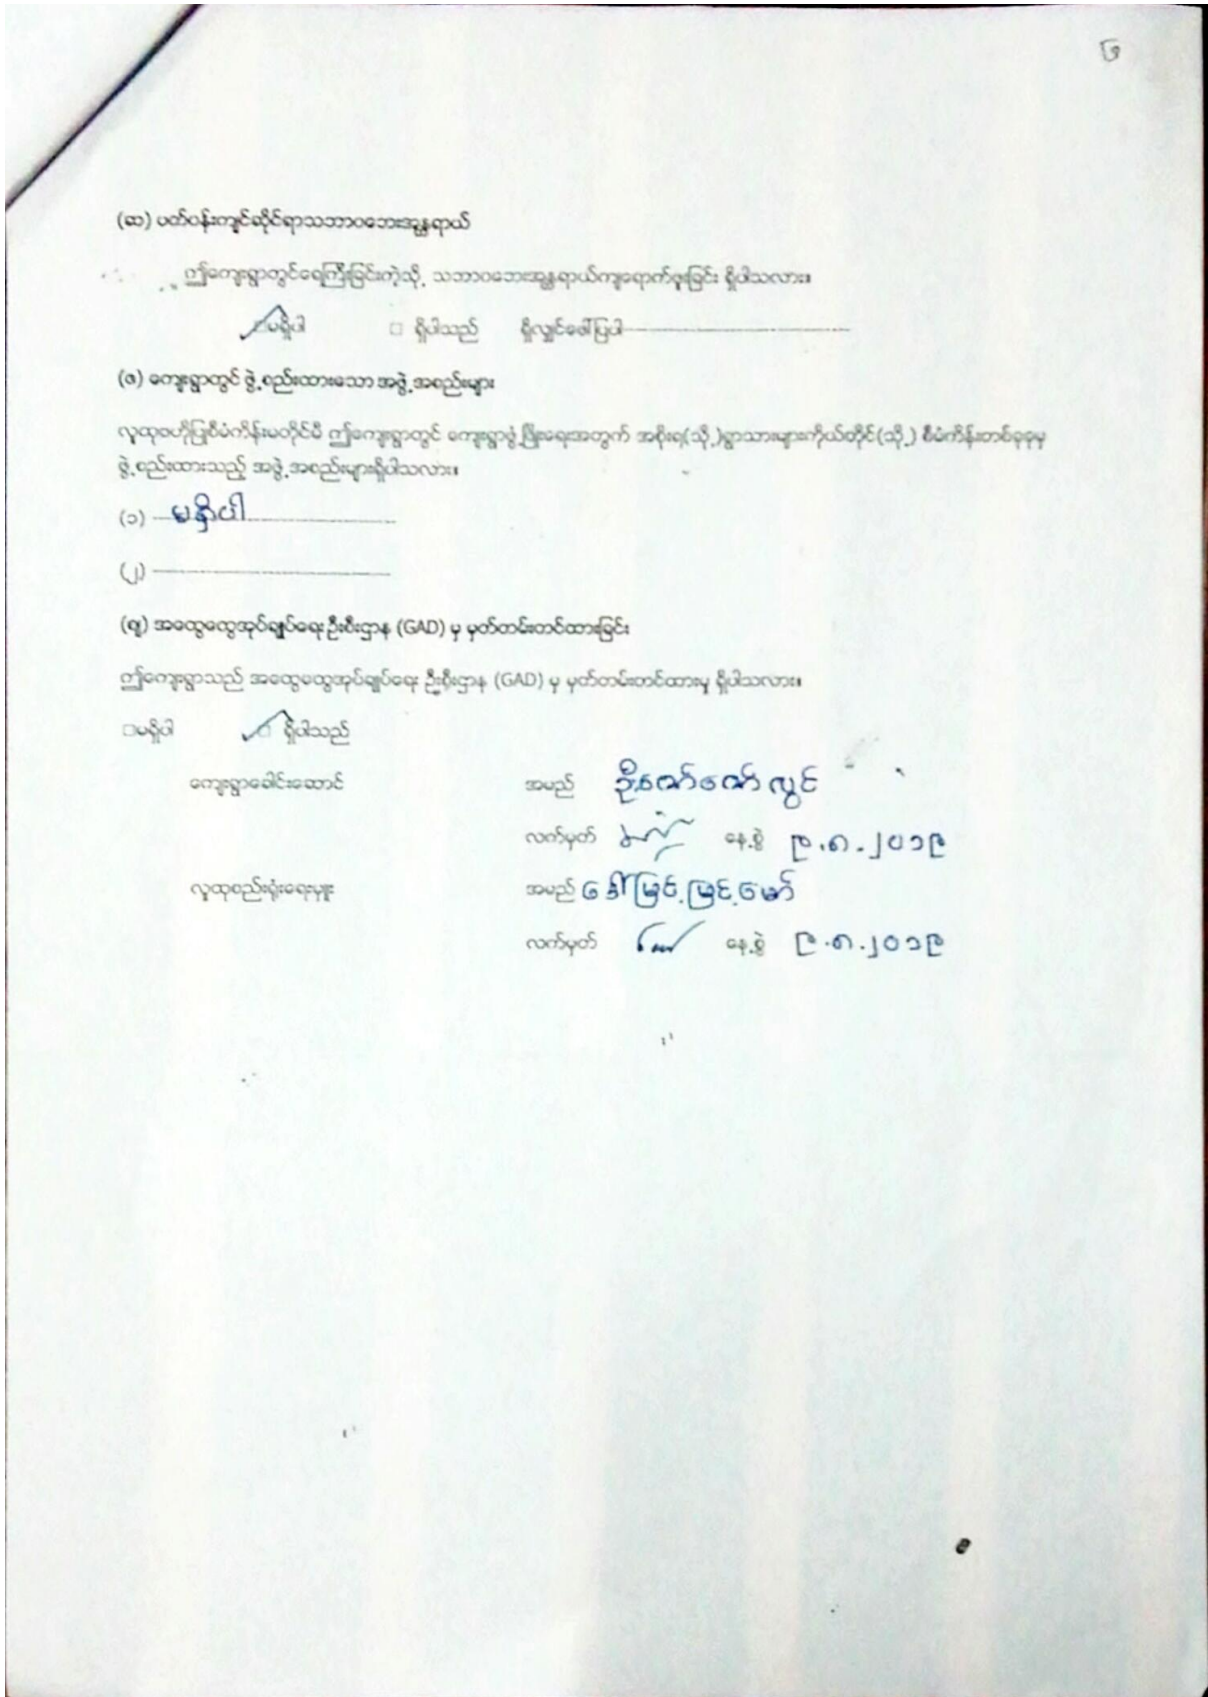 ၆
(ဆ) ပတ်ဝန်းကျင်ဆိုင်ရာသဘာဝဘေးအန္တရာယ်
ဤကျေးရွာတွင်ရေကြီးခြင်းကဲ့သို့ သဘာဝဘေးအန္တရာယ်ကျရောက်ဖူးခြင်း ရှိပါသလား။
✓ □မရှိပါ □ ရှိပါသည် ရှိလျှင်ဖော်ပြပါ
(ဇ) ကျေးရွာတွင် ဖွဲ့စည်းထားသော အဖွဲ့အစည်းများ
လူထုဗဟိုပြုစီမံကိန်းမတိုင်မီ ဤကျေးရွာတွင် ကျေးရွာဖွံ့ဖြိုးရေးအတွက် အစိုးရ(သို့)ရွာသားများကိုယ်တိုင်(သို့) စီမံကိန်းတစ်ခုခုမှ
ဖွဲ့စည်းထားသည့် အဖွဲ့အစည်းများရှိပါသလား။
(၁) မရှိပါ
(၂)
(ဈ) အထွေထွေအုပ်ချုပ်ရေးဦးစီးဌာန (GAD) မှ မှတ်တမ်းတင်ထားခြင်း
ဤကျေးရွာသည် အထွေထွေအုပ်ချုပ်ရေး ဦးစီးဌာန (GAD) မှ မှတ်တမ်းတင်ထားမှု ရှိပါသလား။
□မရှိပါ ✓ □ ရှိပါသည်
ကျေးရွာခေါင်းဆောင် အမည် ဦးဇော်ဇော်လွင်
လက်မှတ် နေ့စွဲ ၉.၈.၂၀၁၉
လူထုစည်းရုံးရေးမှူး အမည် ဒေါ်မြင့်မြင့်မော်
လက်မှတ် နေ့စွဲ ၉.၈.၂၀၁၉